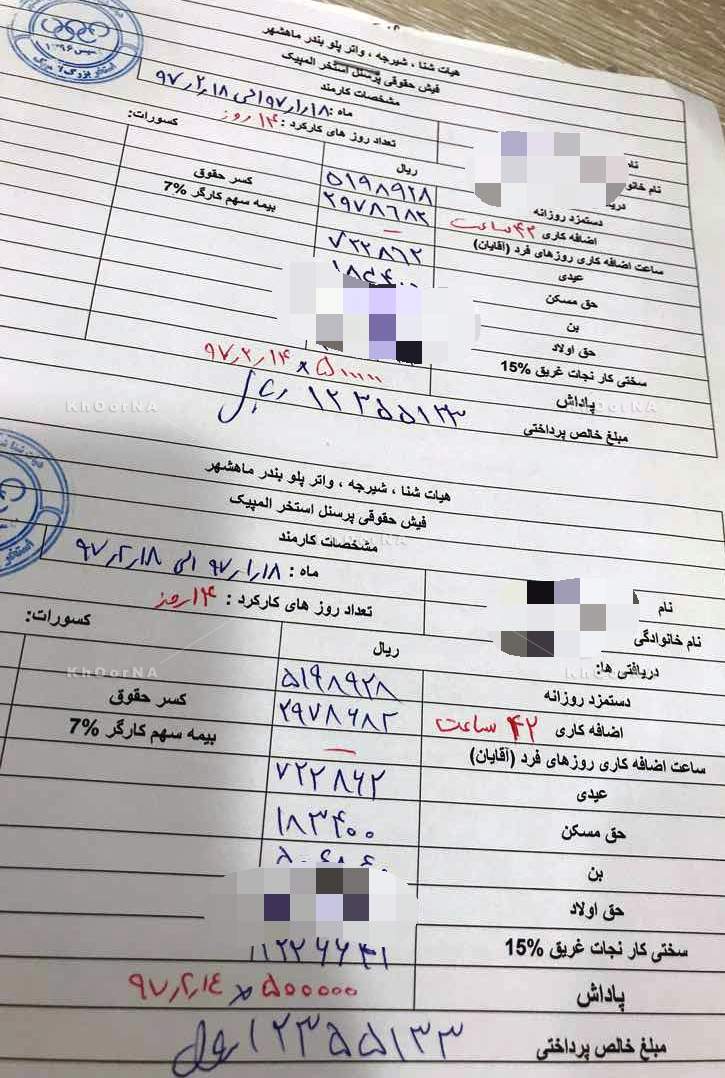 هیات شنا ، شیرجه ، واتر پلو بندر ماهشهر
فیش حقوقی پرسنل استخر المپیک
مشخصات کارمند
ماه : ۹۷٫۱٫۱۸ الی ۹۷٫۲٫۱۸
تعداد روز های کارکرد : ۱۴ روز
کسورات:
نام خانوادگی
ریال
دستمزد روزانه ۵۱۹۸۹۲۸ کسر حقوق
اضافه کاری ۴۲ ساعت ۲۹۷۸۶۸۲ بیمه سهم کارگر 7%
ساعت اضافه کاری روزهای فرد (آقایان) –
عیدی ۷۲۲۸۶۲
حق مسکن
بن
حق اولاد
سختی کار نجات غریق 15%
پاداش ۵۰۰۰۰۰ × ۹۷٫۲٫۱۴
مبلغ خالص پرداختی ۱۲۳۵۵۱۳۳ ریال
KhOorNA KhOorNA
هیات شنا ، شیرجه ، واتر پلو بندر ماهشهر
فیش حقوقی پرسنل استخر المپیک
مشخصات کارمند
KhOorNA
ماه : ۹۷٫۱٫۱۸ الی ۹۷٫۲٫۱۸
نام تعداد روز های کارکرد : ۱۴ روز
نام خانوادگی کسورات:
دریافتی ها: ریال
KhOorNA KhOorNA
دستمزد روزانه ۵۱۹۸۹۲۸ کسر حقوق
اضافه کاری ۴۲ ساعت ۲۹۷۸۶۸۲ بیمه سهم کارگر 7%
ساعت اضافه کاری روزهای فرد (آقایان) –
عیدی ۷۲۲۸۶۲
حق مسکن ۱۸۳۴۰۰
بن
حق اولاد
سختی کار نجات غریق 15%
پاداش ۵۰۰۰۰۰ × ۹۷٫۲٫۱۴
مبلغ خالص پرداختی ۱۲۳۵۵۱۳۳ ریال